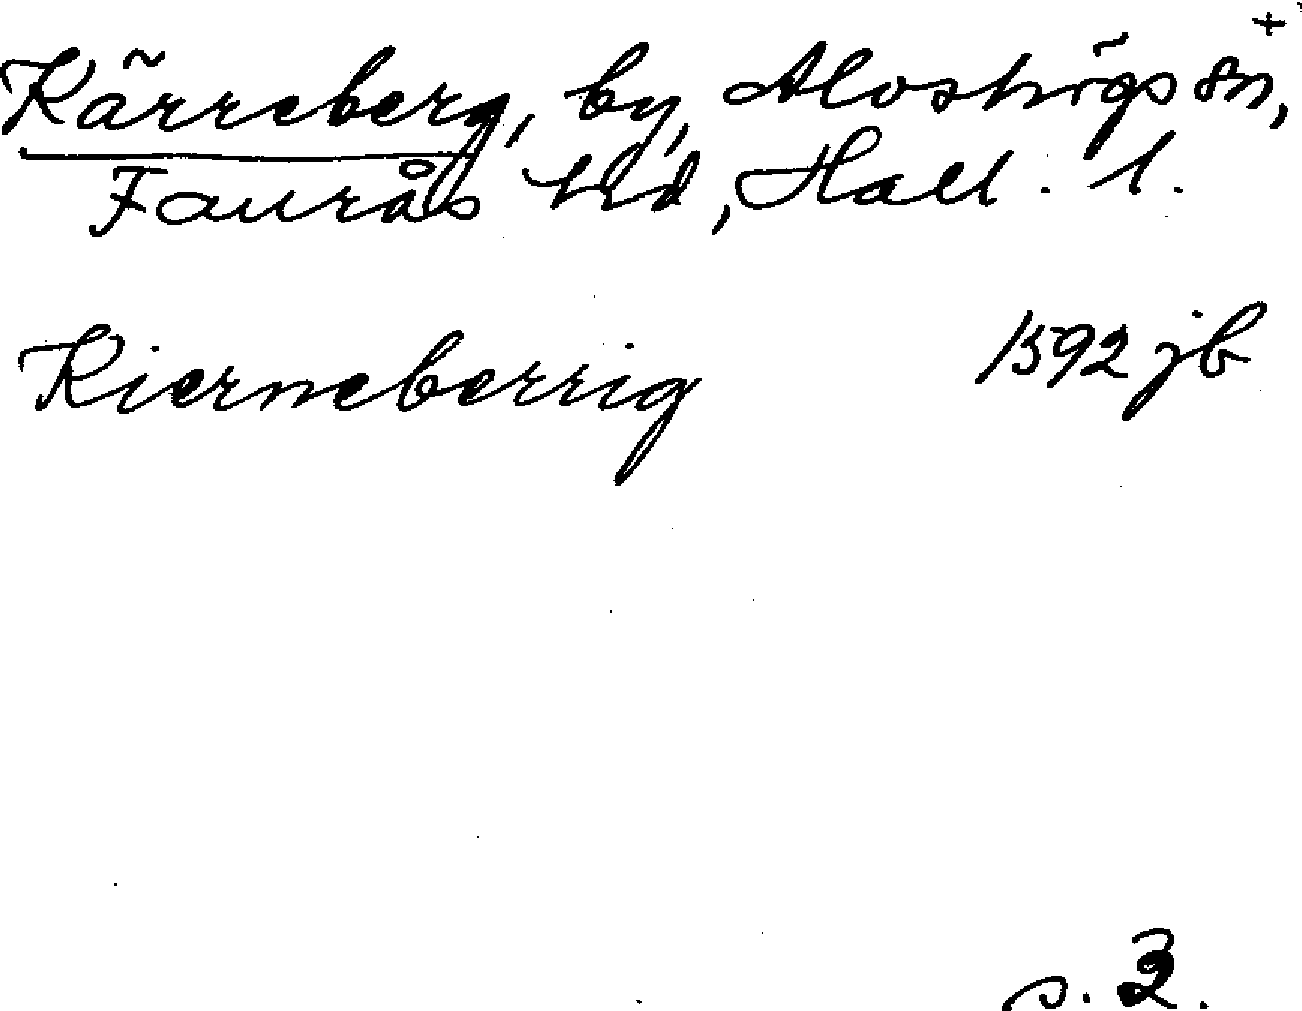 +
Kärreberg, by, Alvshögs sn,
Faurås hrd, Hall. l.
Kierneberrig 1592 jb
s. 3.